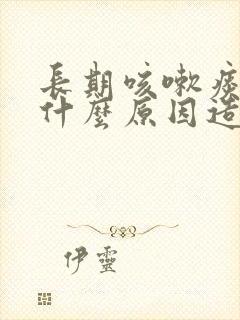 長期咳嗽痰
什麼原因造
伊靈